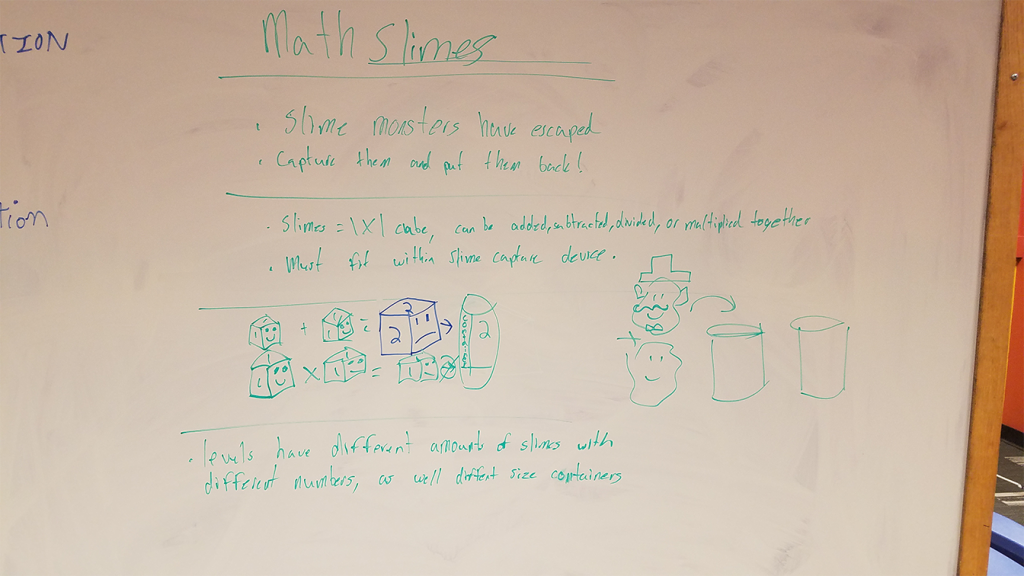 TION
Math Slimes
• Slime monsters have escaped
• Capture them and put them back!
tion
• Slimes = |X| cube, can be added, subtracted, divided, or multiplied together
• Must fit within slime capture device.
1 + 1 = 2 2 → 2
1 1 X 1 = 1
• levels have different amounts of slimes with
different numbers, as well diffent size containers